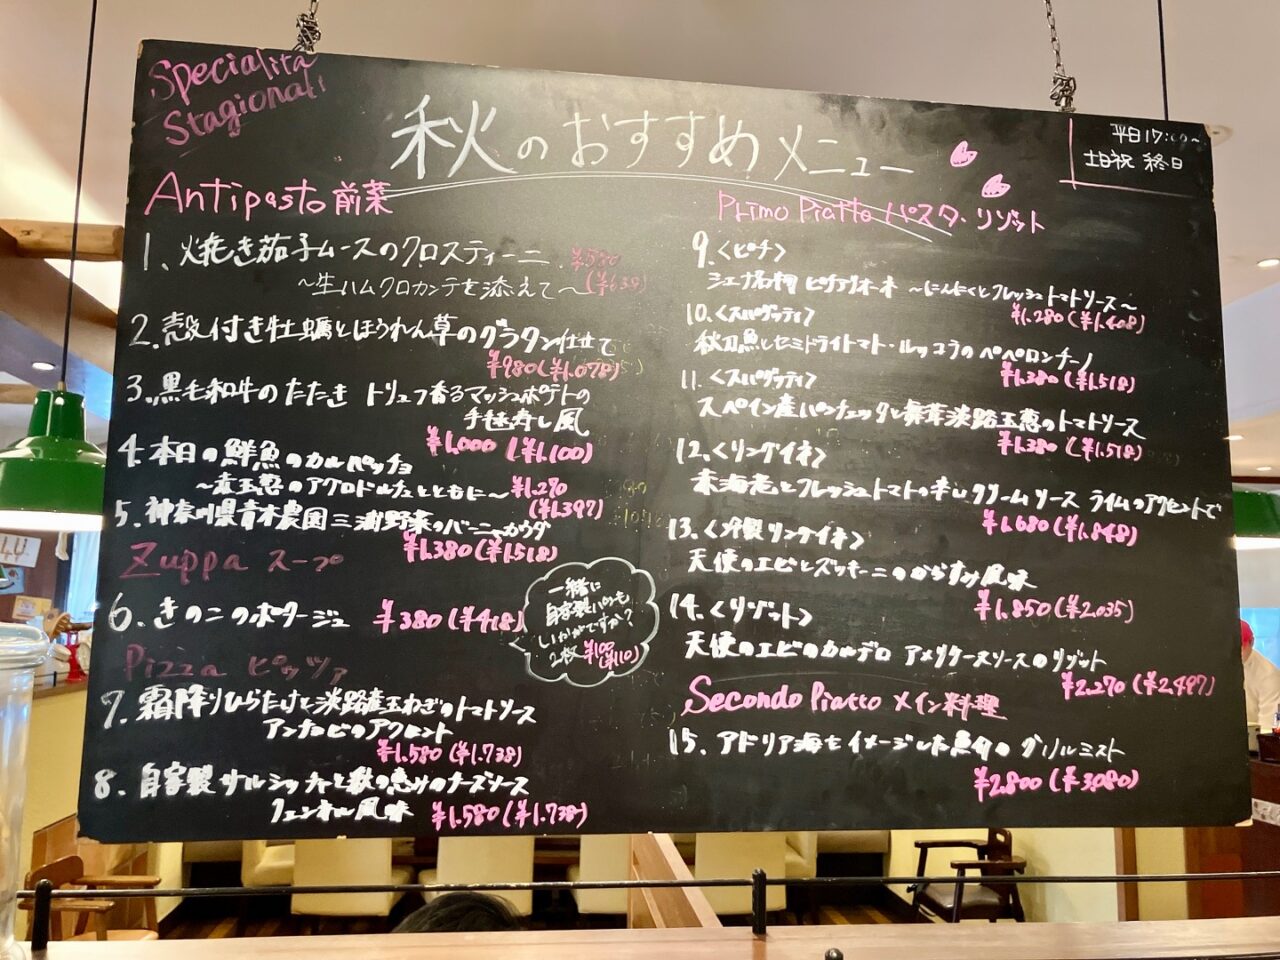 Specialita
Stagionali
秋のおすすめメニュー
平日17:00~
土日祝 終日
Antipasto 前菜
1、焼き茄子ムースのクロスティーニ ¥580
~生ハムクロカンテを添えて~ (¥638)
2、殻付き牡蠣とほうれん草のグラタン仕立て
¥980(¥1.078)
3、黒毛和牛のたたき トリュフ香るマッシュポテトの
手毬寿し風
¥1,000 (¥1,100)
4、本日の鮮魚のカルパッチョ
~赤玉葱のアグロドルチェとともに~ ¥1.270
(¥1.397)
5、神奈川県青木農園 三浦野菜のバーニャカウダ
¥1.380(¥1.518)
Zuppa スープ
6、きのこのポタージュ ¥380(¥418)
一緒に
自家製パンも
いかがですか?
2枚 ¥100
(¥110)
Pizza ピッツァ
7、霜降りひらたけと淡路産玉ねぎのトマトソース
アンチョビのアクセント
¥1.580(¥1.738)
8、自家製サルシッチャと秋の恵みのチーズソース
フェンネル風味 ¥1.580(¥1.738)
Primo Piatto パスタ・リゾット
9、<ピチ>
シエナ名物 ピチアリオーネ ~にんにくとフレッシュトマトソース~
¥1.280(¥1.408)
10、<スパゲッティ>
秋刀魚とセミドライトマト・ルッコラのペペロンチーノ
¥1.380(¥1.518)
11、<スパゲッティ>
スペイン産パンチェッタと舞茸淡路玉葱のトマトソース
¥1.380(¥1.518)
12、<リングイネ>
赤海老とフレッシュトマトの辛いクリームソース ライムのアクセントで
¥1.680(¥1.848)
13、<冷製リングイネ>
天使のエビとズッキーニのからすみ風味
¥1.850(¥2.035)
14、<リゾット>
天使のエビのカルデロ アメリケーヌソースのリゾット
¥2.270(¥2.497)
Secondo Piatto メイン料理
15、アドリア海をイメージした魚介のグリルミスト
¥2.800(¥3.080)